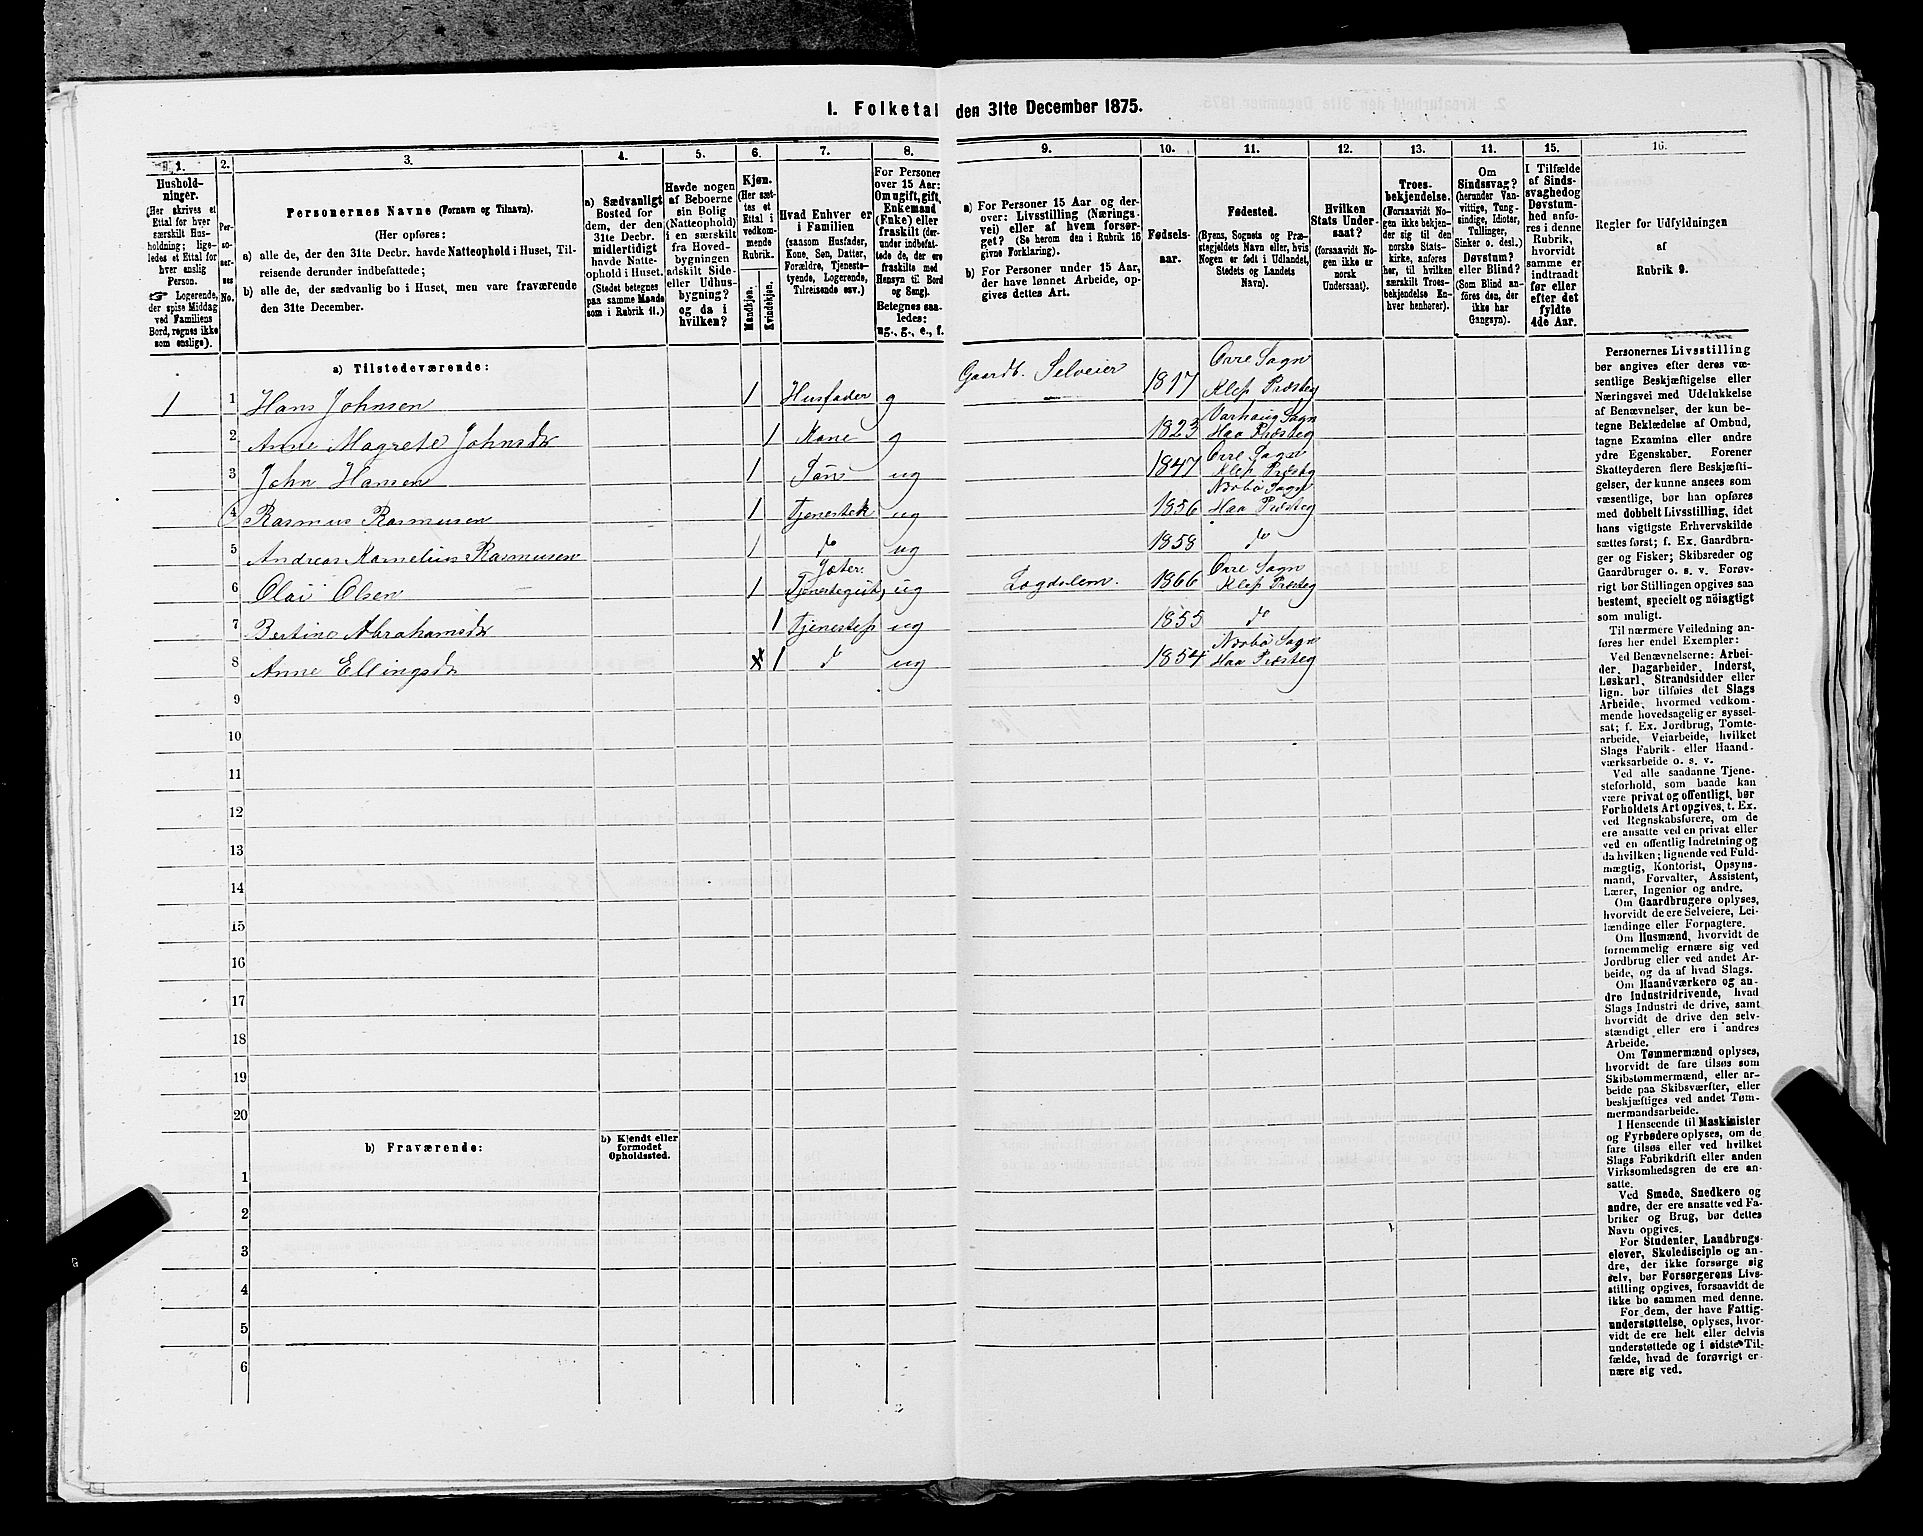 I. Folketal den 31te December 1875.
1.
2.
3.
4.
5.
6.
7.
8.
9.
10.
11.
12.
13.
14.
15.
16.
Husholdninger.
(Her skrives et
Ettal for hver
særskilt Husholdning;
ligeledes et Ettal for
hver enslig
Person.
☞ Logerende,
der spise Middag
ved Familiens
Bord, regnes ikke
som enslige).
Personernes No.
Personernes Navne (Fornavn og Tilnavn).
(Her opføres:
a) alle de, der den 31te Decbr. havde Natteophold i Huset, Tilreisende derunder indbefattede;
b) alle de, der sædvanlig bo i Huset, men vare fraværende
den 31te December.
a) Sædvanligt
Bosted for
dem, der den
31te Decbr.
midlertidigt
havde Natteophold i Huset.
(Stedet betegnes
paa samme Maade
som i Rubrik 11.)
Havde nogen
af Beboerne
sin Bolig
(Natteophold)
i en særskilt
fra Hovedbygningen
adskilt Side-
eller Udhusbygning?
og da i
hvilken?
Kjøn.
(Her sættes et
Ettal i
vedkommende
Rubrik.
Mandkjøn.
Kvindekjøn.
Hvad Enhver er
i Familien
(saasom Husfader,
Kone, Søn, Datter,
Forældre, Tjenestetyende, Logerende,
Tilreisende osv.)
For Personer
over 15 Aar:
Om ugift, gift,
Enkemand
(Enke) eller
fraskilt (derunder indbefattede de, der ere
fraskilte med
Hensyn til Bord
og Seng).
Betegnes saaledes:
ug., g., e., f.
a) For Personer 15 Aar og derover: Livsstilling (Næringsvei) eller af hvem forsørget? (Se herom den i Rubrik 16
givne Forklaring).
b) For Personer under 15 Aar,
der have lønnet Arbeide, opgives dettes Art.
Fødselsaar.
Fødested.
(Byens, Sognets og Præstegjeldets Navn eller, hvis
Nogen er født i Udlandet,
Stedets og Landets
Navn).
Hvilken
Stats Undersaat?
(foraavidt Nogen ikke er
norsk
Undersaat).
Troesbekjendelse.
(Forsaavidt Nogen ikke bekjender sig til den
norske Statskirke, anføres
her, til hvilken
særskilt Troesbekjendelse Enhver henhører).
Om
Sindssvag?
(herunder Vanvittige, Tungsindige, Idioter,
Tullinger,
Sinker o. desl.)
Døvstum?
eller Blind?
(Som Blind anføres den, der
ikke har
Gangsyn).
I Tilfælde
af Sindssvaghed og
Døvstumhed anføres i denne
Rubrik,
hvorvidt
samme er
indtraadt
før eller
efter det
fyldte
4de Aar.
Regler for Udfyldningen
af
Rubrik 9.
a) Tilstedeværende:
1 1 Hans Johnsen 1 Husfader g Gaardb. Selveier 1817 Orre Sogn Klep Præsteg
2 Anne Magrete Johnsdr 1 Kone g 1823 Varhaug Sogn Haa Præsteg
3 John Hansen 1 Søn ug 1847 Orre Sogn Klep Præsteg
4 Rasmus Rasmusen 1 Tjenestek ug 1856 Nærbø Sogn Haa Præsteg
5 Andreas Kornelius Rasmusen 1 do ug 1858 do
6 Olai Olsen 1 Tjenestegut, ug Lægdslem. 1866 Orre Sogn Klep Præsteg
7 Bertine Abrahamsdr 1 Tjenestep ug 1855 do
8 Anne Ellingsdr 1 do ug 1854 Nærbø Sogn Haa Præsteg
9
10
11
12
13
14
15
16
17
18
19
20
b) Fraværende:
b) Kjendt eller
formodet
Opholdssted.
1
2
3
4
5
6
Personernes Livsstilling
bør angives efter deres væsentlige Beskjæftigelse eller
Næringsvei med Udelukkelse
af Benævnelser, der kun betegne Beklædelse af Ombud,
tagne Examina eller andre
ydre Egenskaber. Forener
Skatteyderen flere Beskjæftigelser, der kunne ansees som
væsentlige, bør han opføres
med dobbelt Livsstilling, idet
hans vigtigste Erhvervskilde
sættes først; f. Ex. Gaardbruger og Fisker; Skibsreder og
Gaardbruger o. s. v. Forøvrigt bør Stillingen opgives saa
bestemt, specielt og nöiagtigt
som muligt.
Til nærmere Veiledning anføres her endel Exempler:
Ved Benævnelserne: Arbeider, Dagarbeider, Inderst,
Løskarl, Strandsidder eller
lign. bør tilføies det Slags
Arbeide, hvormed vedkommende hovedsagelig er sysselsat; f. Ex. Jordbrug, Tomtearbeide, Veiarbeide, hvilket
Slags Fabrik- eller Haandværksarbeide o. s. v.
Ved alle saadanne Tjenesteforhold, som baade kan
være privat og offentligt, bør
Forholdets Art opgives, t. Ex.
ved Regnskabsførere, om de
ere ansatte ved en privat eller
ved en offentlig Indretning og
da hvilken; lignende ved Fuldmægtig, Kontorist, Opsynsmand, Forvalter, Assistent,
Lærer, Ingeniør og andre.
Om Gaardbrugere oplyses,
hvorvidt de ere Selveiere, Leilændinge eller Forpagtere.
Om Husmænd, hvorvidt de
fornemmelig ernære sig ved
Jordbrug eller ved andet Arbeide, og da af hvad Slags.
Om Haandværkere og andre Industridrivende, hvad
Slags Industri de drive, samt
hvorvidt de drive den selvstændigt eller ere i andres
Arbeide.
Om Tømmermænd oplyses,
hvorvidt de fare tilsøs som
Skibstømmermænd, eller arbeide paa Skibsværfter, eller
beskjæftiges ved andet Tømmermandsarbeide.
I Henseende til Maskinister
og Fyrbødere oplyses, om de
fare tilsøs eller ved hvilket
Slags Fabrikdrift eller anden
Virksomhedsgren de ere ansatte.
Ved Smede, Snedkere og
andre, der ere ansatte ved Fabriker og Brug, bør dettes
Navn opgives.
For Studenter, Landbrugselever, Skoledisciple og andre, der ikke forsørge sig
selv, bør Forsørgerens Livsstilling opgives, forsaavidt de
ikke bo sammen med denne.
For dem, der have Fattigunderstøttelse, oplyses, hvorvidt de ere helt eller delvis
understøttede og i sidste Tilfælde, hvad de forøvrigt ernære sig ved.